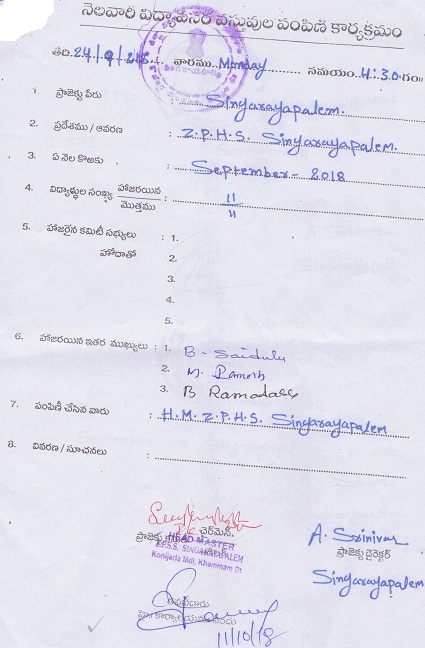 నెలవారి విద్యాపరిసర వస్తువుల పంపిణి కార్యక్రమం
తేది. 24/9/218. వారము.. Monday సమయం. 4:30 గం॥
1. ప్రాజెక్టు పేరు : Singarayapalem.
2. ప్రదేశము / ఆవరణ : Z.P.H.S. Singarayapalem.
3. ఏ నెల కొఱకు : September - 2018
4. విద్యార్థుల సంఖ్య హాజరయిన / మొత్తము : 11 / 11
5. హాజరైన కమిటీ సభ్యులు : 1.
హోదాతో 2.
3.
4.
5.
6. హాజరయిన ఇతర ముఖ్యులు : 1. B - Saidulu
2. M. Ramesh
3. B Ramadass
7. పంపిణీ చేసిన వారు : H.M. Z.P.H.S. Singarayapalem
8. వివరణ / సూచనలు :
ఛైర్మెన్.
ప్రాజెక్టు కమిటీ
HEAD MASTER
Z.P.S.S. SINGARAYAPALEM
Konijerla Mdl. Khammam Dt
A. Srinivas
ప్రాజెక్టు డైరెక్టర్
Singarayapalem
11/10/18